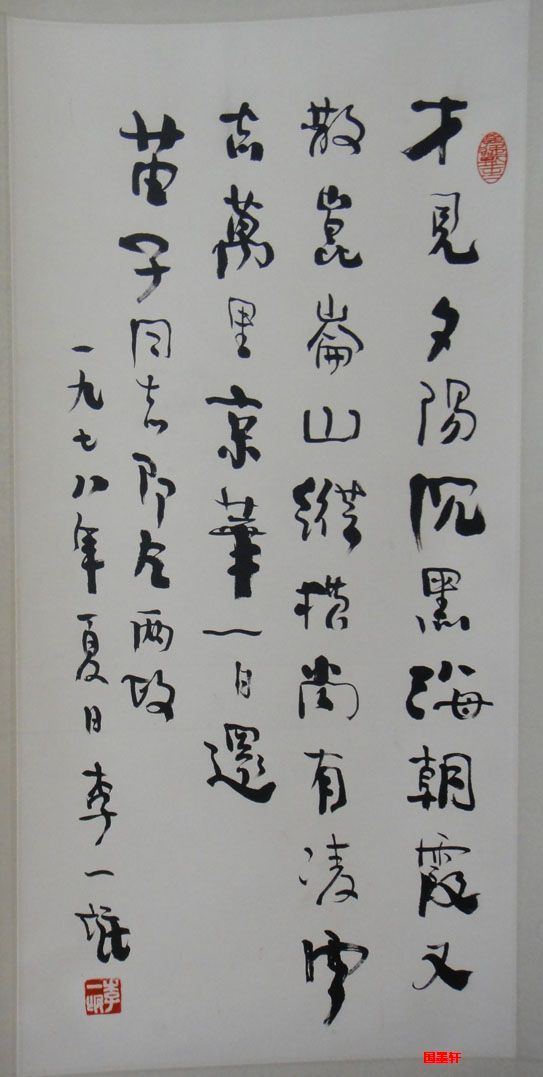 才見夕陽沉黑海朝霞又
散崑崙山縱橫尚有凌雪
志萬里京華一日還
苗子同志即乞兩政
一九七八年夏日李一氓
李一氓
国墨轩